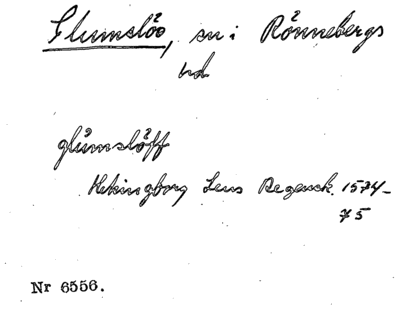 Glumslöv, sn i Rönnebergs
hd
glůmslöff
Helsingborg Lens Regensk. 1574-
75
Nr 6556.